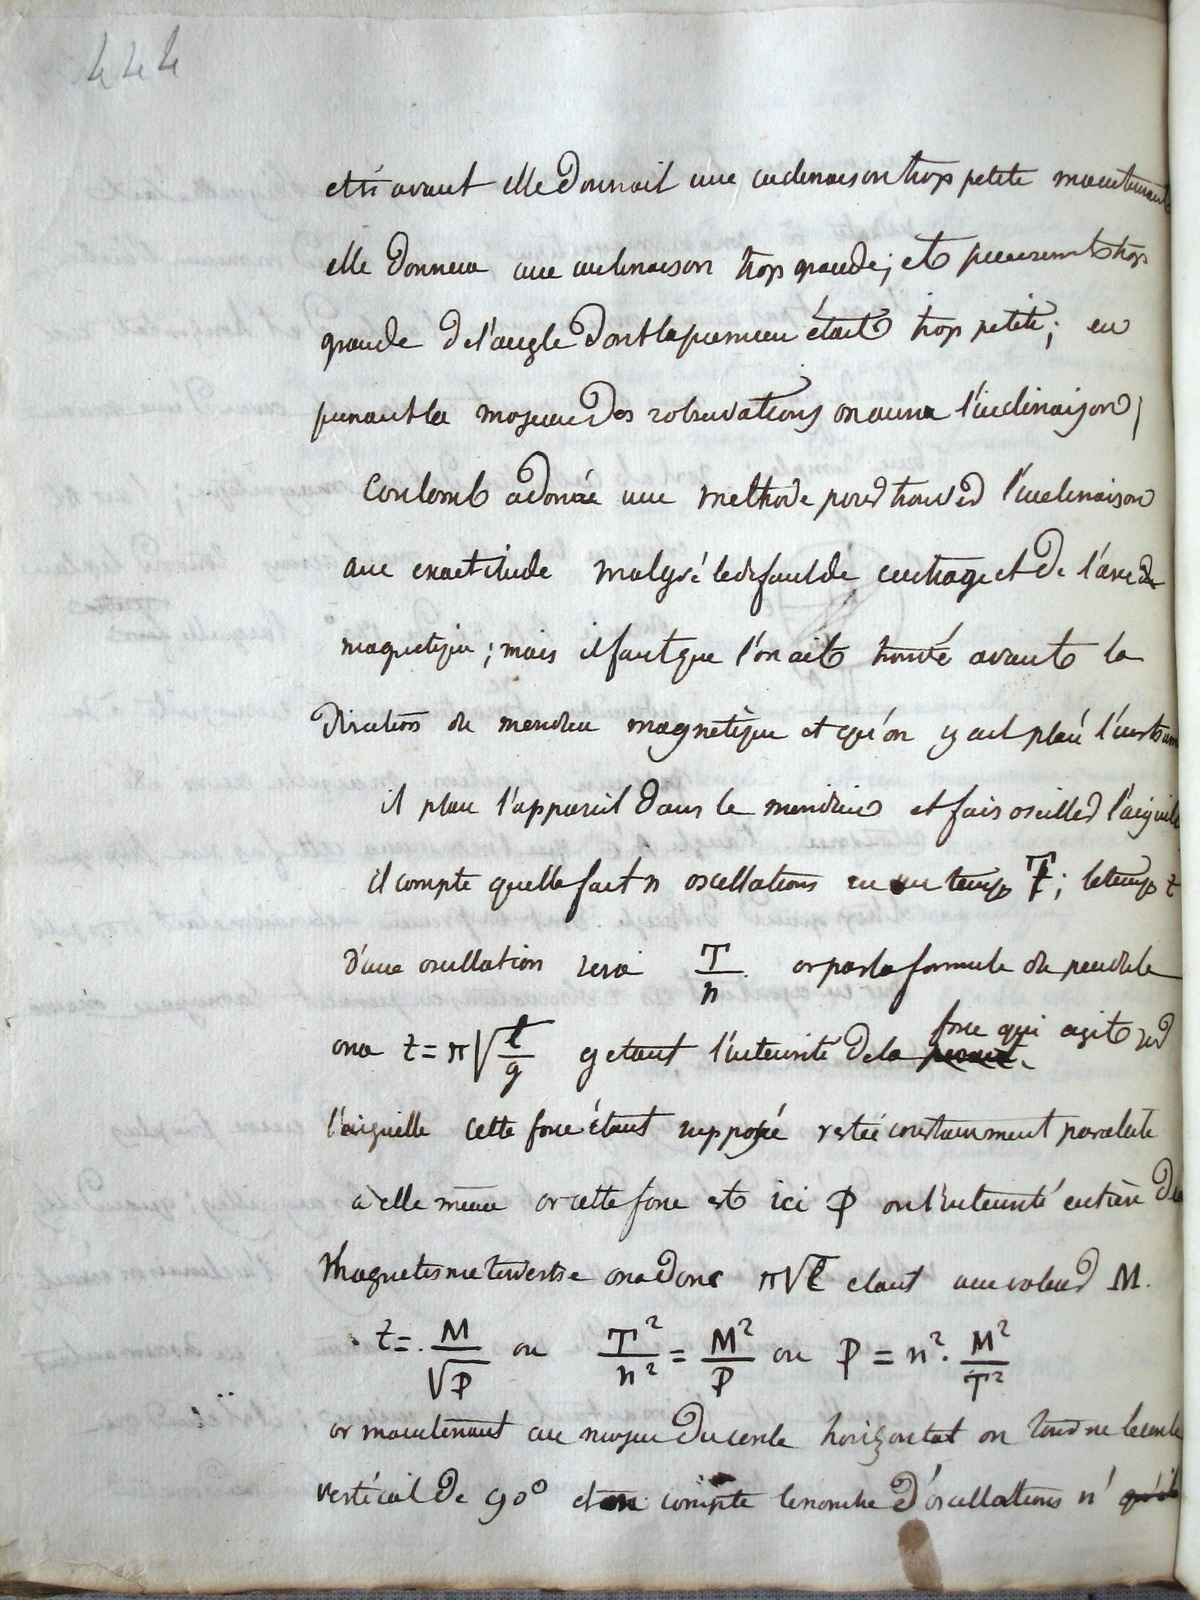 444
et si avant elle donnait une inclinaison trop petite maintenant
elle donnera une inclinaison trop grande; et précisement trop
grande de l'angle dont la premiere était trop petite; en
prenant la moyenne des 2 observations on aura l'inclinaison;
Coulomb a donné une methode pour trouver l'inclinaison
avec exactitude malgré le defaut de centrage et de l'axe
magnetique; mais il faut que l'on ait trouvé avant la
direction du meridien magnétique et qu'on y ait placé l'instrum
il place l'appareil dans le meridien et fais osciller l'aiguille
il compte quelle fait n oscillations en un temps T; le temps t
d'une oscillation sera T/n or par la formule du pendule
on a t = π√(l/g) g etant l'intensité de la force qui agit sur
l'aiguille cette force étant supposée restée constamment paralele
a elle meme or cette force est ici P ou l'intensité entière du
Magnetisme terrestre on a donc π√l etant une valeur M.
t = M/√P ou T²/n² = M²/P ou P = n². M²/T²
or maintenant au moyen du cercle horizontal on tourne le cercle
vertical de 90° et on compte le nombre d'oscillations n' qu'il